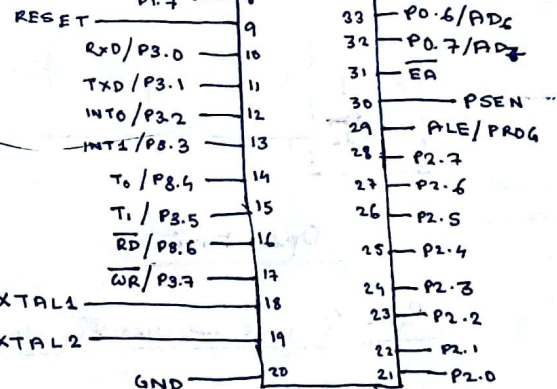 P1.7 8
RESET 9
RxD/P3.0 10
TXD/P3.1 11
INT0/P3.2 12
INT1/P3.3 13
T0/P3.4 14
T1/P3.5 15
RD/P3.6 16
WR/P3.7 17
XTAL1 18
XTAL2 19
GND 20
33 P0.6/AD6
32 P0.7/AD7
31 EA
30 PSEN
29 ALE/PROG
28 P2.7
27 P2.6
26 P2.5
25 P2.4
24 P2.3
23 P2.2
22 P2.1
21 P2.0